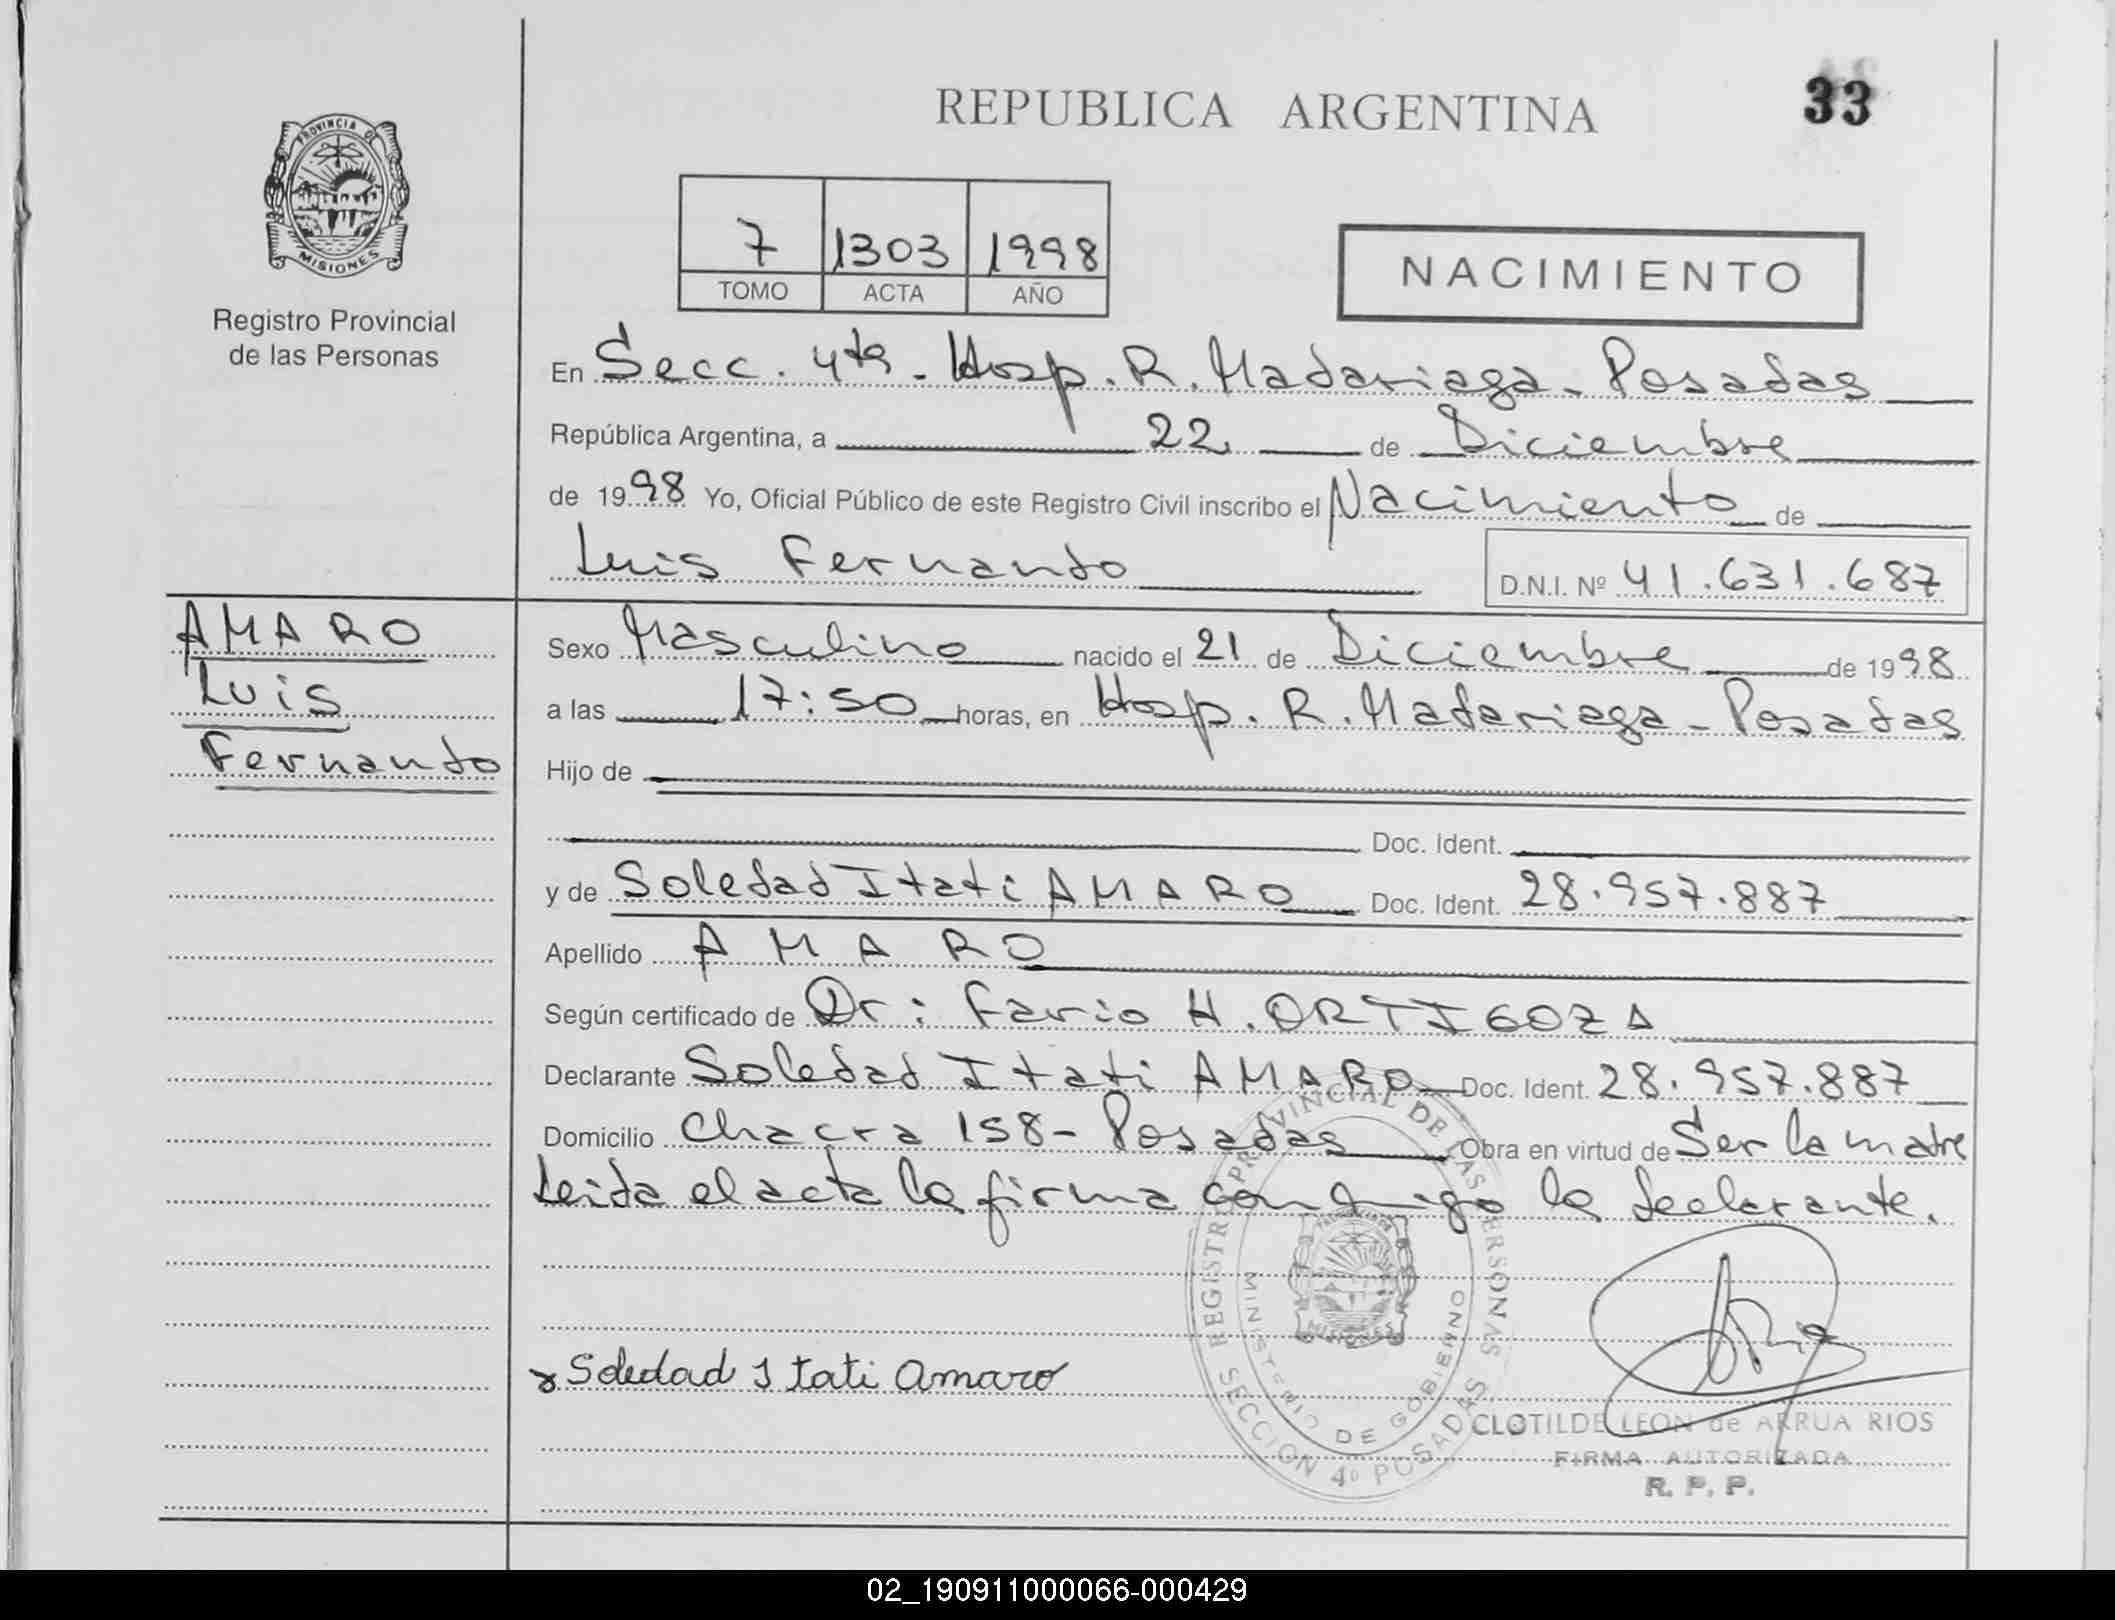 REPUBLICA ARGENTINA
33
PROVINCIA DE
MISIONES
Registro Provincial
de las Personas
7 1303 1998
TOMO ACTA AÑO
NACIMIENTO
En Secc. 4ta - Hosp. R. Madariaga - Posadas
República Argentina, a 22 de Diciembre
de 1998 Yo, Oficial Público de este Registro Civil inscribo el Nacimiento de
Luis Fernando
D.N.I. Nº 41.631.687
AMARO
Luis
Fernando
Sexo Masculino nacido el 21 de Diciembre de 1998
a las 17:50 horas, en Hosp. R. Madariaga - Posadas
Hijo de
Doc. Ident.
y de Soledad Itati AMARO Doc. Ident. 28.957.887
Apellido AMARO
Según certificado de Dr: Fario H. ORTIGOZA
Declarante Soledad Itati AMARO Doc. Ident. 28.957.887
Domicilio Chacra 158 - Posadas Obra en virtud de Ser la madre
Leida el acta la firma conmigo la declarante.
REGISTRO PROVINCIAL DE LAS PERSONAS
MINISTERIO DE GOBIERNO
SECCION 4º POSADAS
MISIONES
x Soledad Itati Amaro
CLOTILDE LEON de ARRUA RIOS
FIRMA AUTORIZADA
R. P. P.
02_190911000066-000429